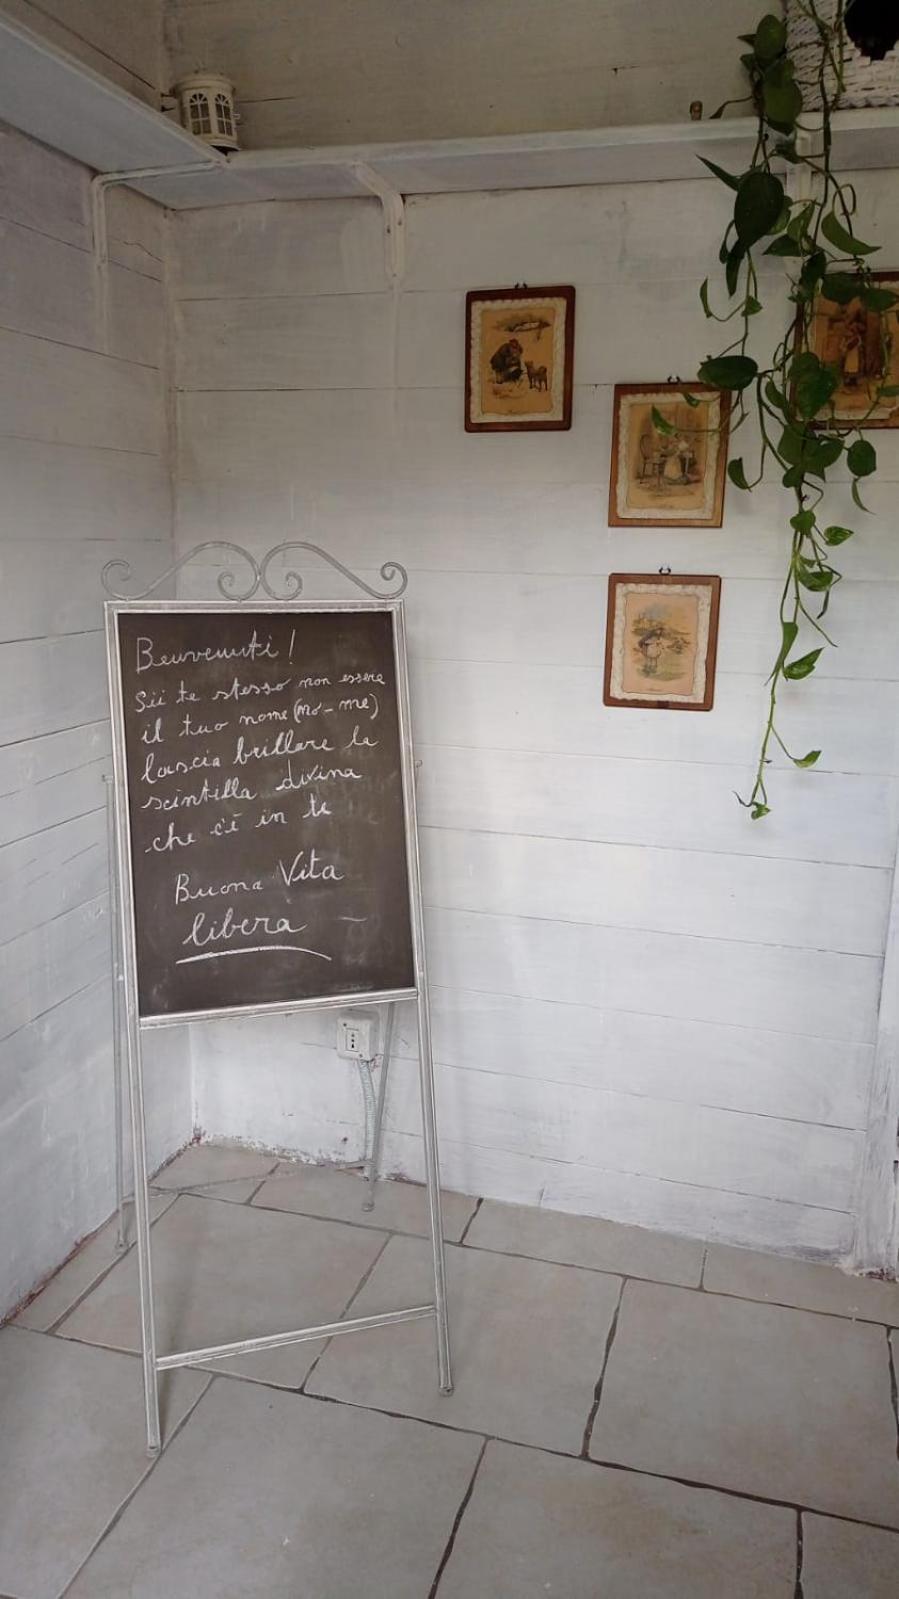 Benvenuti!
Sii te stesso non essere
il tuo nome (no-me)
lascia brillare la
scintilla divina
che c'è in te
Buona Vita
libera